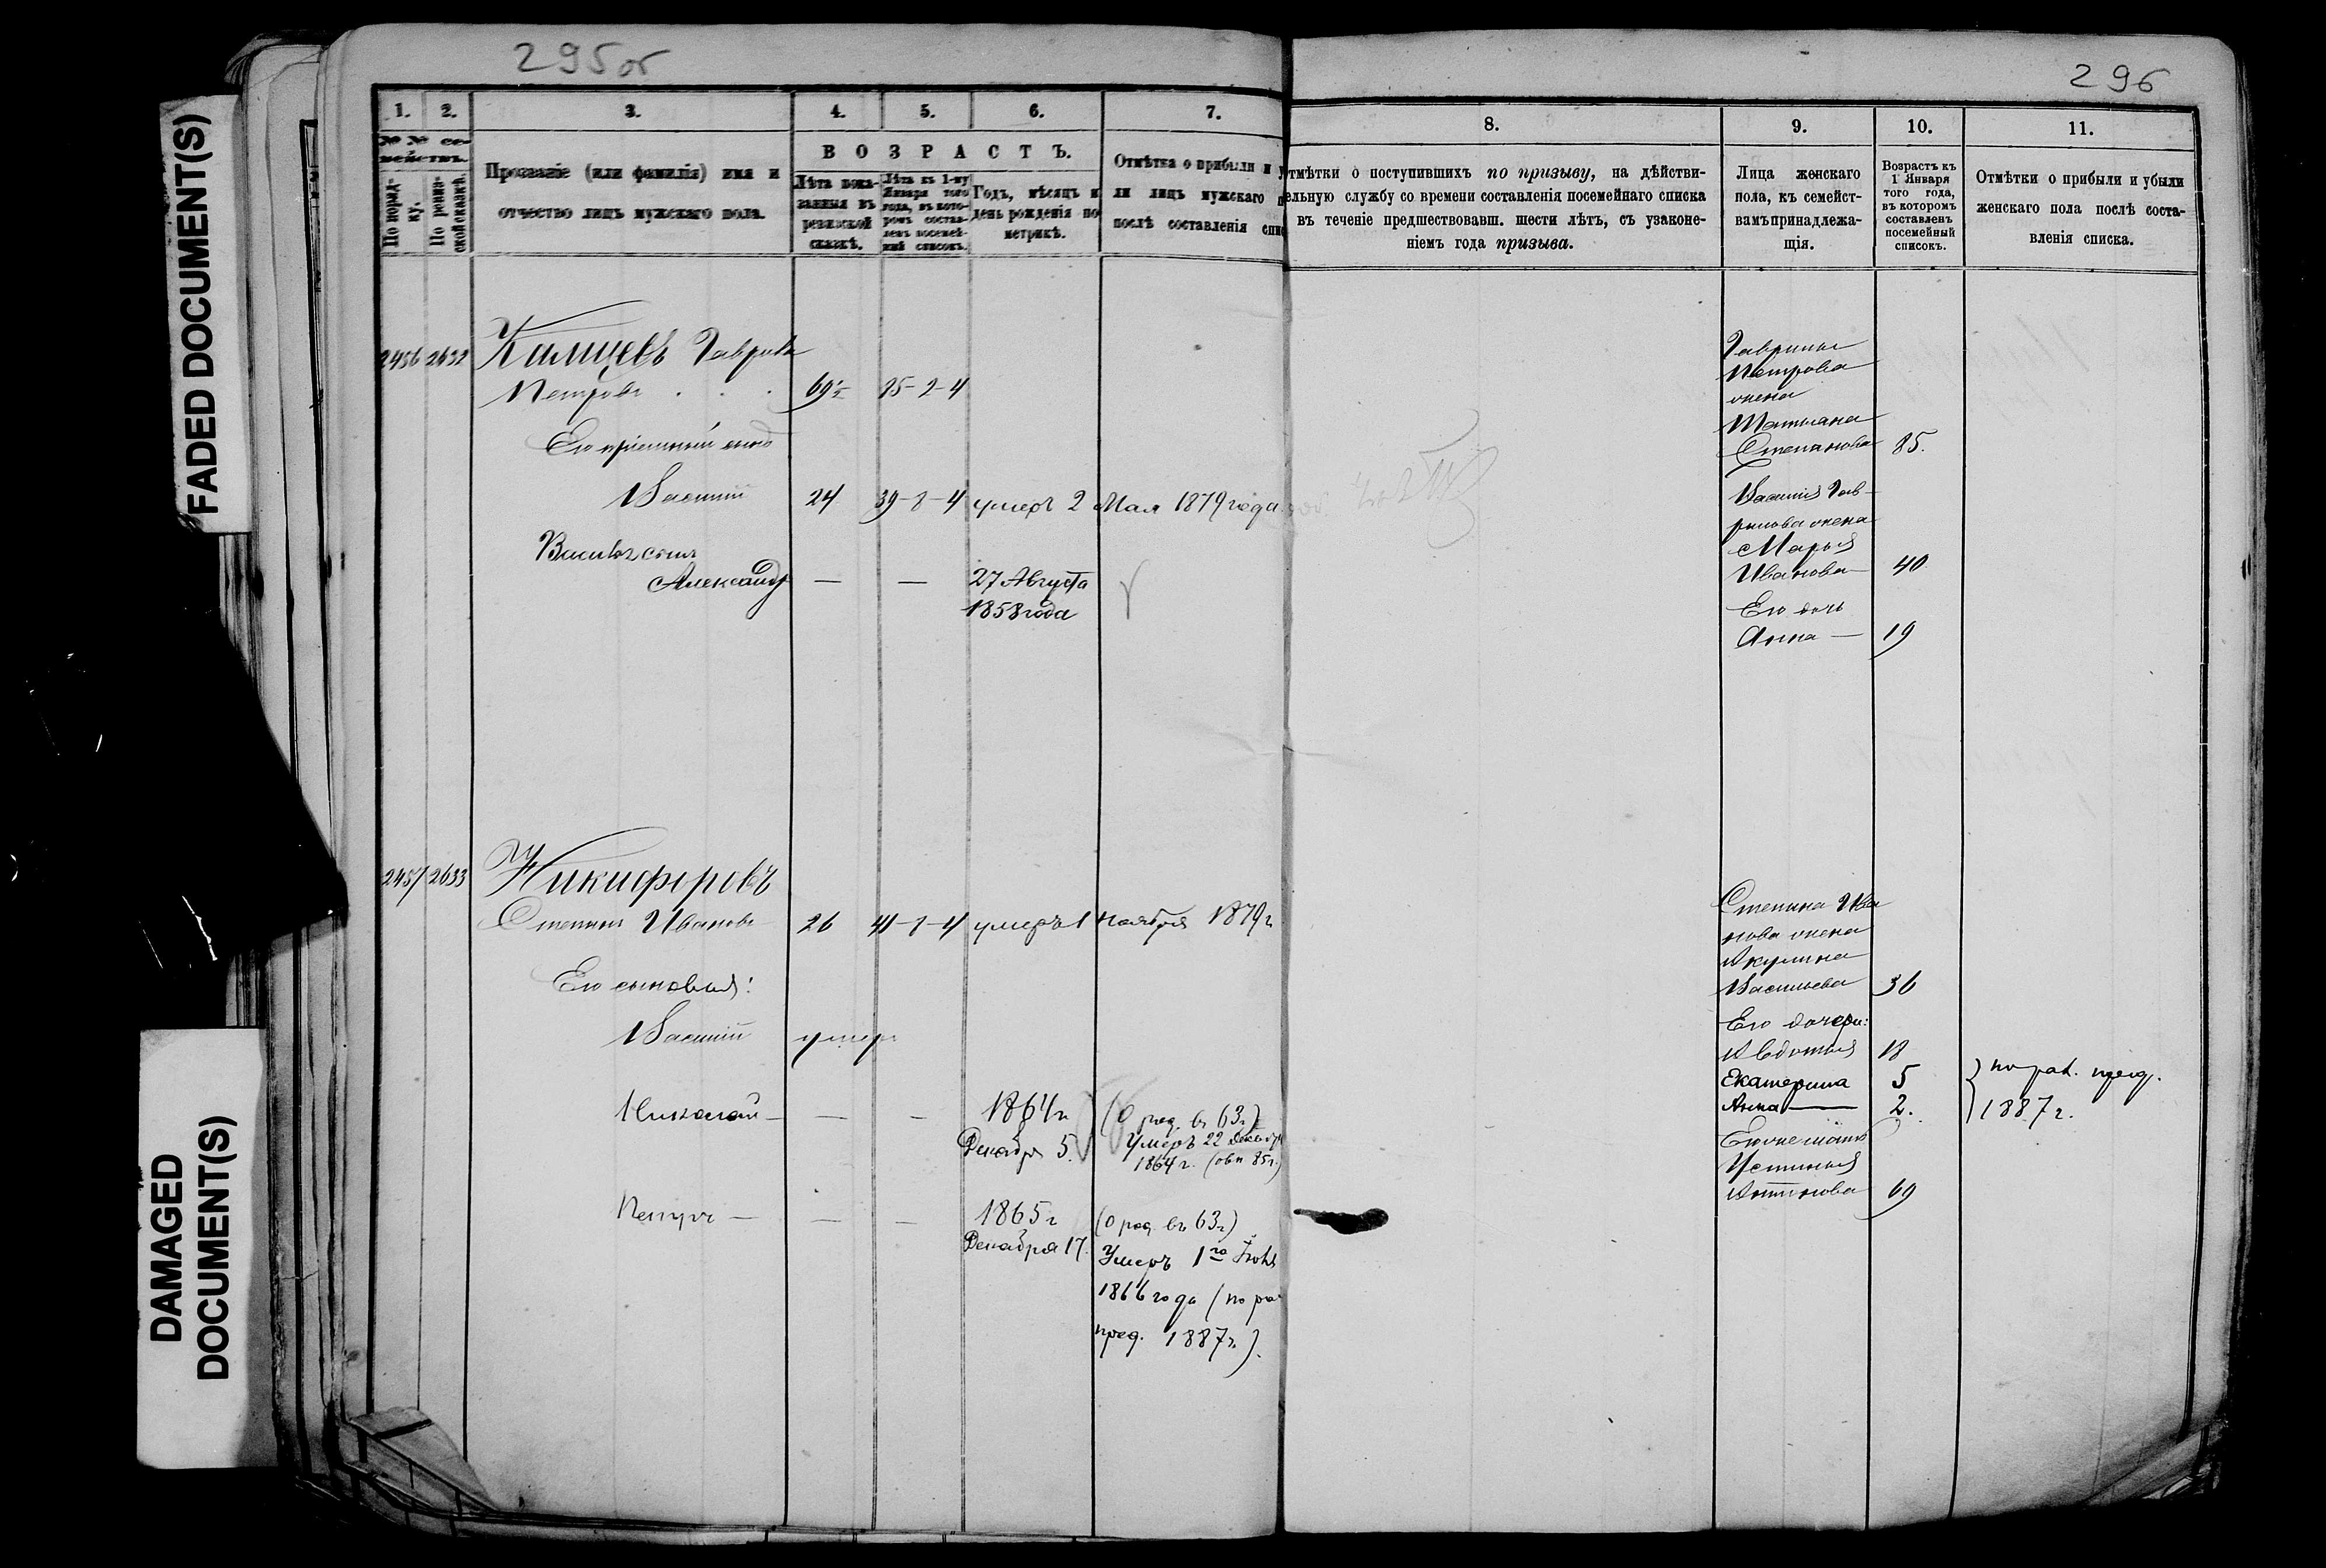 295об
296
FADED DOCUMENT(S)
DAMAGED
DOCUMENT(S)
1.
2.
3.
4.
5.
6.
7.
№ № се-
мействъ.
По поряд-
ку.
По ревиз-
ской сказкѣ.
Прозваніе (или фамилія) имя и
отчество лицъ мужскаго пола.
ВОЗРАСТЪ.
Лѣта пока-
занныя въ
ревизской
сказкѣ.
Лѣта къ 1-му
Января того
года, въ кото-
ромъ состав-
ленъ посемей-
ный списокъ.
Годъ, мѣсяцъ и
день рожденія по
метрикѣ.
Отмѣтка о прибыли и у
ли лицъ мужскаго п
послѣ составленія спис
2456 2632 Калицевъ Гаврила
Петровъ . . . 69½ 85-2-4
Его пріемный сынъ
Василій 24 39-8-4 умеръ 2 Мая 1879 года
Васильевъ сынъ
Александръ — — 27 Августа
1858 года
2457 2633 Никифоровъ
Степанъ Ивановъ 26 41-8-4 умеръ 1 ноября 1879 г
Его сыновья:
Василій умеръ
Николай — — — 1864 г. (О род. въ 63 г.)
Декабря 5. Умеръ 22 Декабр
1864 г. 85 г.)
Петръ — — — 1865 г (О род. въ 63 г.)
Декабря 17. Умеръ 1го Іюня
1866 года (по ра
пред. 1887 г.).
8.
9.
10.
11.
тмѣтки о поступившихъ по призыву, на дѣйстви-
ельную службу со времени составленія посемейнаго списка
въ теченіе предшествовавш. шести лѣтъ, съ узаконе-
ніемъ года призыва.
Лица женскаго
пола, къ семейст-
вамъ принадлежа-
щія.
Возрастъ къ
1 Января
того года,
въ которомъ
составленъ
посемейный
списокъ.
Отмѣтки о прибыли и убыли
женскаго пола послѣ соста-
вленія списка.
Гаврилы
Петрова
жена
Татьяна
Степанова 85.
Василія Гав-
рилова жена
Марья
Иванова 40
Его дочь
Анна — 19
Степана Ива
нова жена
Акулина
Васильева 36
Его дочери:
Авдотья 18
Екатерина 5 } по рав. пред.
Анна — 2. } 1887 г.
Его же мать
Устинья
Антонова 69